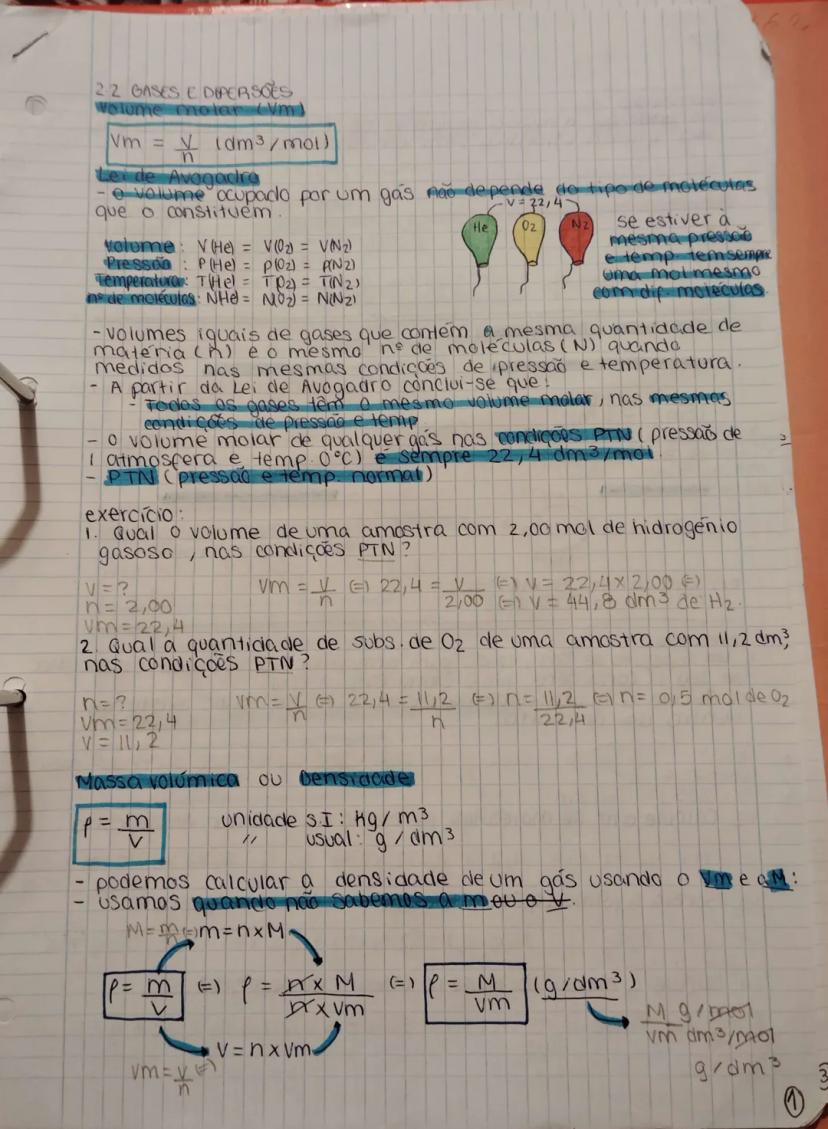 2.2 GASES E DIPERSÕES
Volume molar (Vm)
Vm = V/n (dm³/mol)
Lei de Avogadro
- O volume ocupado por um gás não depende do tipo de moléculas
que o constituem.
V = 22,4
He O2 N2
se estiver à
mesma pressão
e temp tem sempre
uma mol mesmo
com dif. moléculas.
Volume: V(He) = V(O2) = V(N2)
Pressão: P(He) = P(O2) = P(N2)
Temperatura: T(He) = T(O2) = T(N2)
nº de moléculas: N(He) = N(O2) = N(N2)
- Volumes iguais de gases que contêm a mesma quantidade de
matéria (n) e o mesmo nº de moléculas (N) quando
medidos nas mesmas condições de pressão e temperatura.
- A partir da Lei de Avogadro conclui-se que:
- Todos os gases têm o mesmo volume molar, nas mesmas
condições de pressão e temp
- O volume molar de qualquer gás nas condições PTN (pressão de
1 atmosfera e temp. 0°C) é sempre 22,4 dm³/mol
- PTN (pressão e temp. normal)
exercício:
1. Qual o volume de uma amostra com 2,00 mol de hidrogénio
gasoso, nas condições PTN?
V = ?
n = 2,00
Vm = 22,4
Vm = V/n (=) 22,4 = V/2,00 (=) V = 22,4 x 2,00 (=)
(=) V = 44,8 dm³ de H2.
2. Qual a quantidade de subs. de O2 de uma amostra com 11,2 dm³,
nas condições PTN?
n = ?
Vm = 22,4
V = 11,2
Vm = V/n (=) 22,4 = 11,2/n (=) n = 11,2/22,4 (=) n = 0,5 mol de O2
Massa volúmica ou Densidade
ρ = m/V
unidade S.I: Kg/m³
" usual: g/dm³
- podemos calcular a densidade de um gás usando o Vm e a M:
- usamos quando não sabemos a m ou o V.
M = m/n (=) m = n x M
ρ = m/V (=) ρ = n x M / n x Vm (=) ρ = M/Vm (g/dm³)
V = n x Vm
Vm = V/n (=)
M g/mol
Vm dm³/mol
g/dm³
1
3